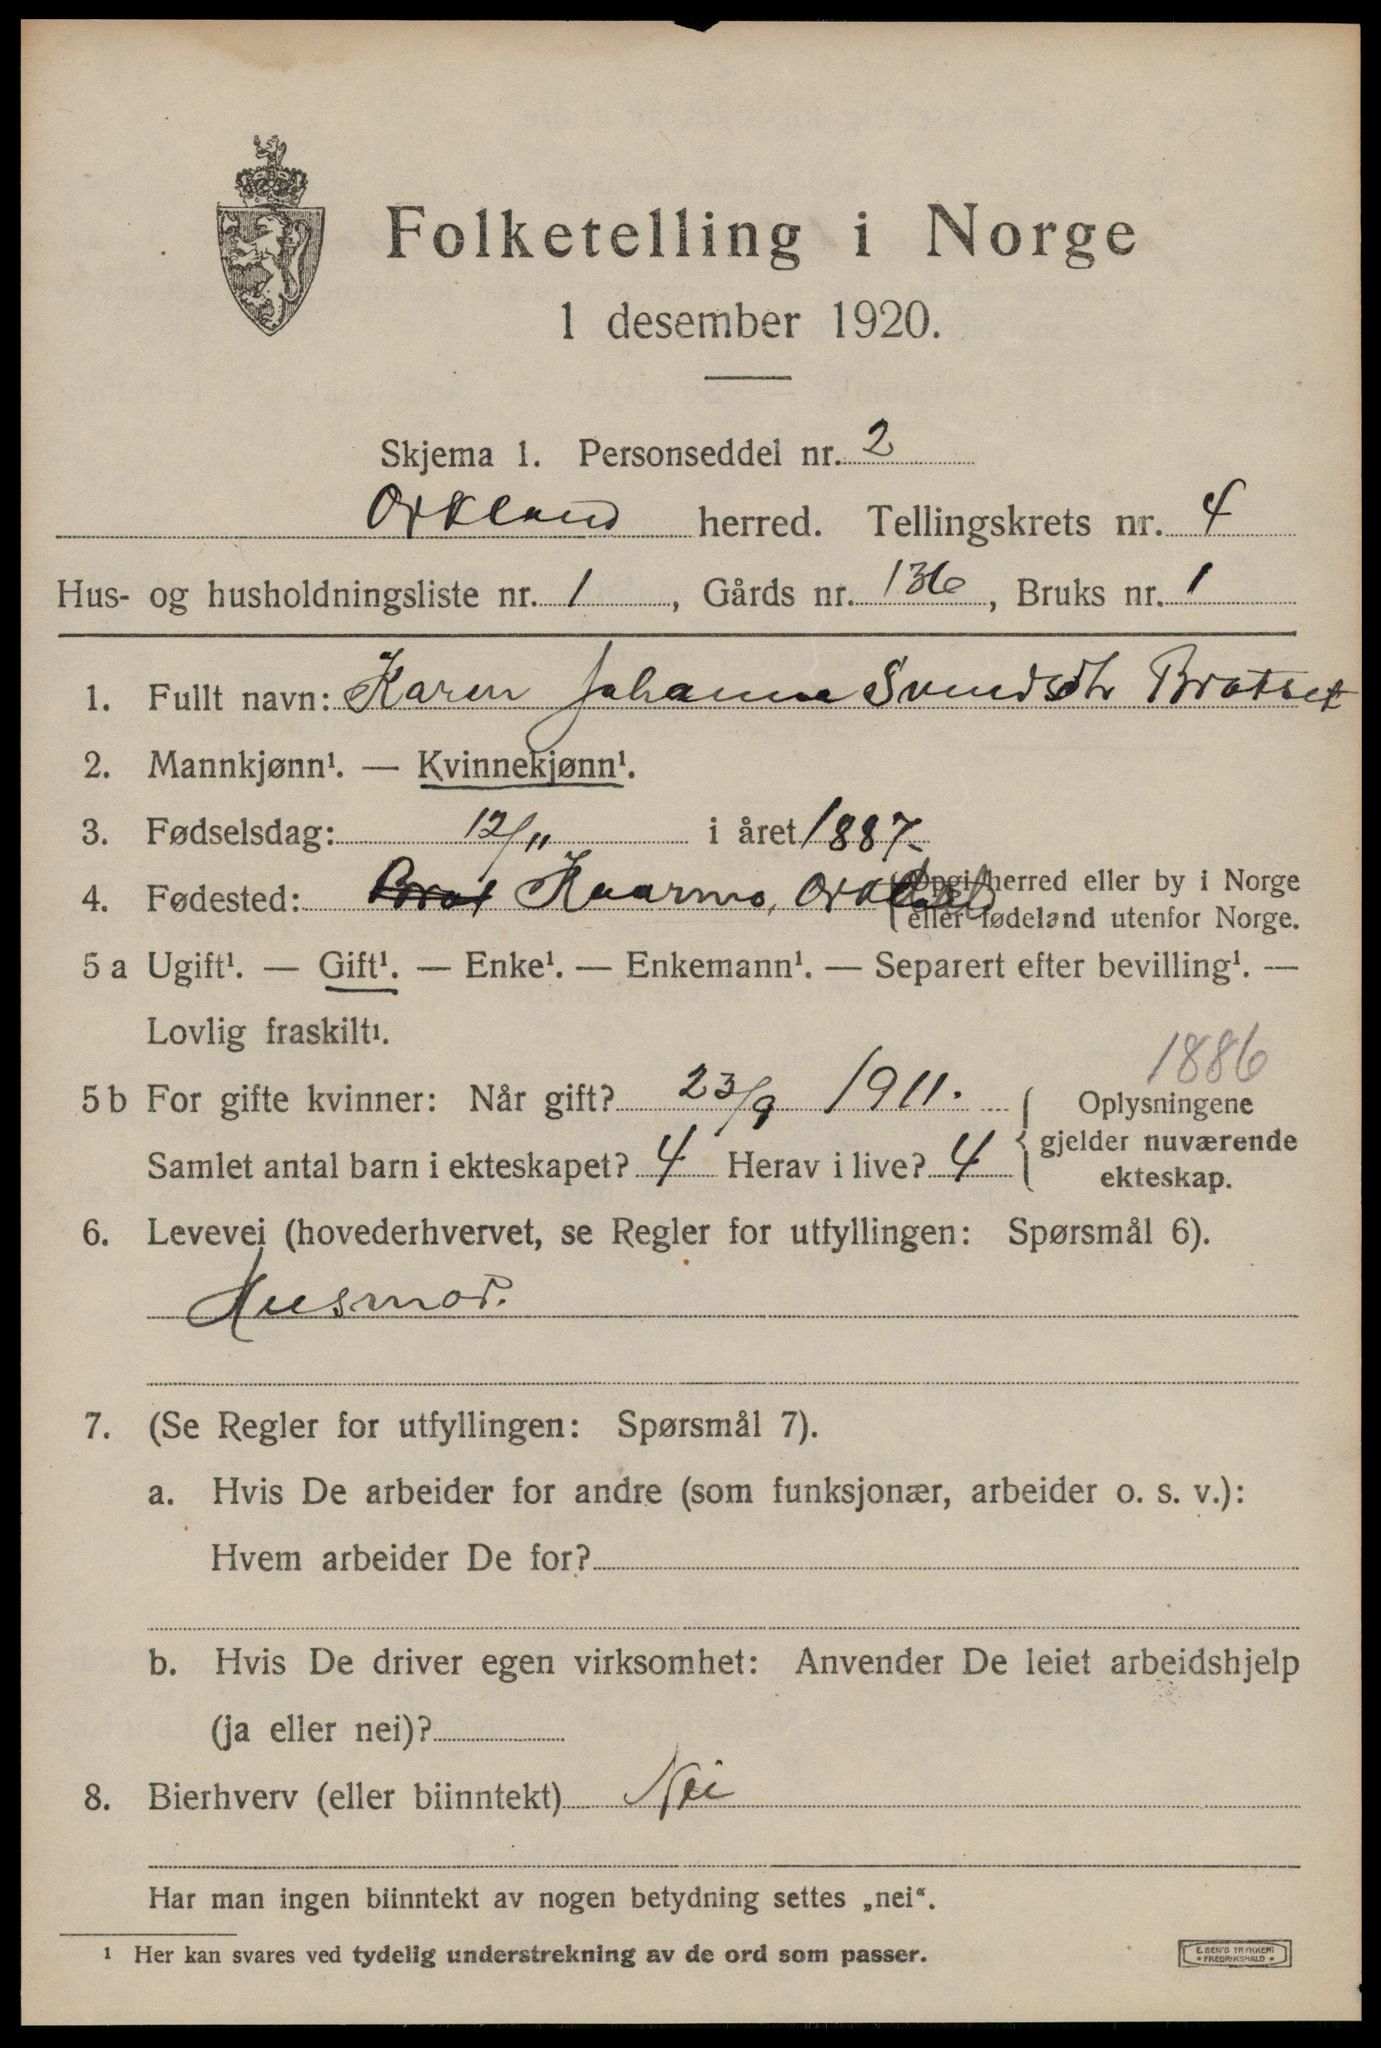 Folketelling i Norge
1 desember 1920.
Skjema 1. Personseddel nr. 2
Orkland herred. Tellingskrets nr. 4
Hus- og husholdningsliste nr. 1, Gårds nr. 136, Bruks nr. 1
1. Fullt navn: Karen Johanna Svendsdtr Bratset
2. Mannkjønn¹. — Kvinnekjønn¹.
3. Fødselsdag: 12/11 i året 1887.
4. Fødested: Brat Kaarmo, Orkland {Opgi herred eller by i Norge
eller fødeland utenfor Norge.
5 a Ugift¹. — Gift¹. — Enke¹. — Enkemann¹. — Separert efter bevilling¹. —
Lovlig fraskilt¹.
1886
5 b For gifte kvinner: Når gift? 23/9 1911. { Oplysningene
gjelder nuværende
Samlet antal barn i ekteskapet? 4 Herav i live? 4
ekteskap.
6. Levevei (hovederhvervet, se Regler for utfyllingen: Spørsmål 6).
Husmor.
7. (Se Regler for utfyllingen: Spørsmål 7).
a. Hvis De arbeider for andre (som funksjonær, arbeider o. s. v.):
Hvem arbeider De for?
b. Hvis De driver egen virksomhet: Anvender De leiet arbeidshjelp
(ja eller nei)?
8. Bierhverv (eller biinntekt) Nei
Har man ingen biinntekt av nogen betydning settes „nei“.
¹ Her kan svares ved tydelig understrekning av de ord som passer.
E. SEM'S TRYKKERI
• FREDRIKSHALD •